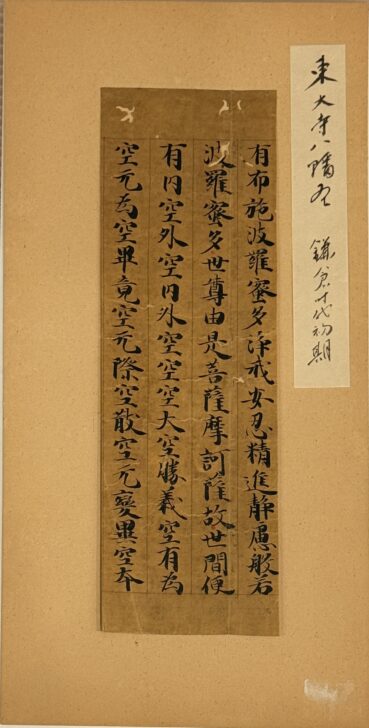 東大寺八幡宮 鎌倉時代初期
有布施波羅蜜多淨戒安忍精進靜慮般若
波羅蜜多世尊由是菩薩摩訶薩故世間便
有内空外空内外空空空大空勝義空有為
空无為空畢竟空无際空散空无變異空本